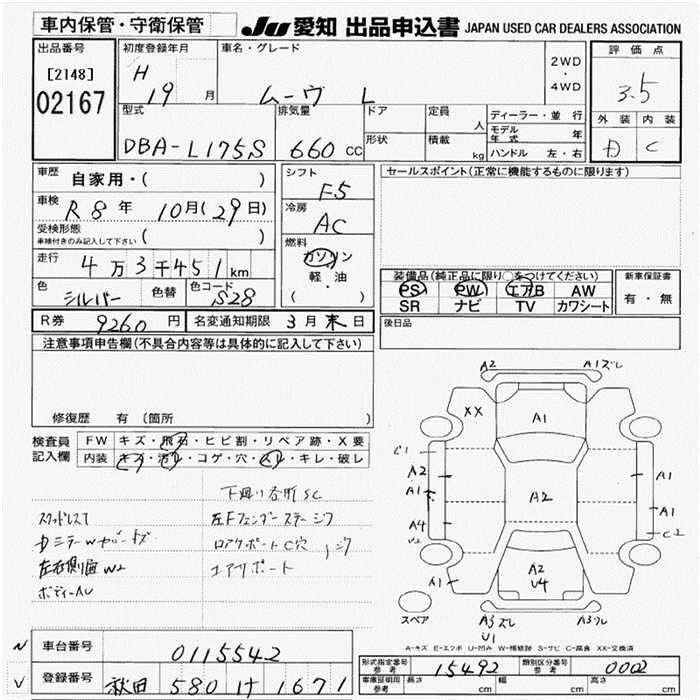 車内保管・守衛保管 JU 愛知 出品申込書 JAPAN USED CAR DEALERS ASSOCIATION
出品番号 初度登録年月 車名・グレード 2WD ・ 4WD 評価点
[2148] H 19 月 ムーヴ L 3.5
02167 外装 内装
型式 排気量 ドア 定員 人 ディーラー・並行
DBA-L175S 660 cc 形状 積載 kg モデル年式 年 C
ハンドル 左・右
車歴 自家用・( ) シフト F5 セールスポイント(正常に機能するものに限ります)
車検 R8年 10月(29日) 冷房 AC
受検形態 車検付きのみ記入して下さい ( )
走行 4万3千451km 燃料 ガソリン 軽・油 ( )
色 シルバー 色替 色コード S28
装備品(純正品に限り○をつけてください) 新車保証書
PS PW エアB AW 有・無
SR ナビ TV カワシート
R券 9260円 名変通知期限 3月末日 後日品
注意事項申告欄(不具合内容等は具体的に記入して下さい)
修復歴 有 (箇所 )
検査員記入欄 FW キズ・飛石・ヒビ割・リペア跡・X要
内装 キズ・汚レ・コゲ・穴・スレ・キレ・破レ
下廻り各所SC
スタッドレスT 左Fフェンダーステージワ
左右側面W2 エアサポート
ボディーAU
A2 A1ズレ
XX A1
C1 A2 A1 A1
A1 A2 A1
A4 C2
W2
A1 A2 U4 A1
スペア A3ズレ A3ワレ
U1
A-キズ E-エクボ U-凹み W-補修跡 S-サビ C-腐食 XX-交換済
車台番号 0115542
登録番号 秋田 580 け 1671
形式指定番号 参考 15492 類別区分番号 参考 0002
車庫証明用 参考 長さ cm 幅 cm 高さ cm